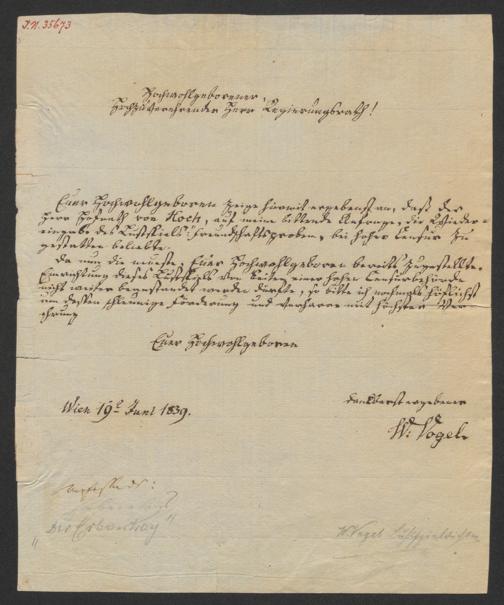 J.N. 35673
Hochwohlgeborener,
Hochzuverehrender Herr Regierungsrath!
Euer Hochwohlgeboren zeige hiermit ergebenst an, daß der
Herr Hofrath von Koch, auf meine bittende Anfrage, die Wieder-
eingabe des Lustspiels: Freundschaftsproben, bei hoher Censur zu
gestatten beliebte.
Da nun die neueste, Euer Hochwohlgeboren bereits zugestellte,
Einrichtung dieses Lustspiels von Seite einer hohen Censurbehörde
nicht weiter beanstandet werden dürfte, so bitte ich nochmals höflichst
um dessen schleunige Förderung und verharre mit höchster Ver-
ehrung
Euer Hochwohlgeboren
Wien 19t Juni 1839.
dankbarst ergebener
W: Vogel.
W. Vogel Lustspieldichter